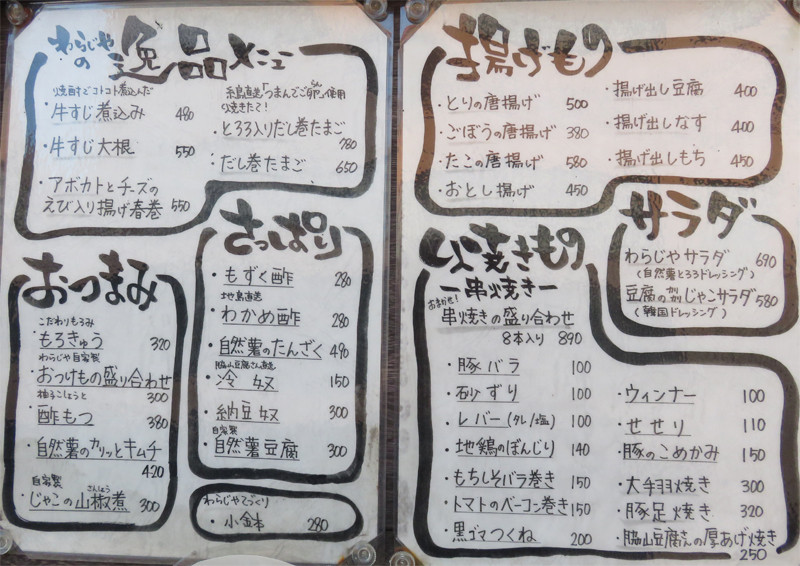 わらじやの逸品メニュー
焼酎でコトコト煮込んだ
・牛すじ煮込み 480
・牛すじ大根 550
・アボカトとチーズの
えび入り揚げ春巻 550
糸島直送「つまんでご卵」使用
り焼きたて!
・とろろ入りだし巻たまご
780
・だし巻たまご
650
おつまみ
こだわりもろみ
・もろきゅう 320
わらじや自家製
・おつけもの盛り合わせ
300
柚子こしょうと
・酢もつ 380
・自然薯のカリッとキムチ
420
自家製
さんしょう
・じゃこの山椒煮 300
さっぱり
・もずく酢 280
地島直送
・わかめ酢 280
・自然薯のたんざく 490
脇山豆腐さん直送
・冷奴 150
・納豆奴 300
自家製
・自然薯豆腐 300
わらじやてづくり
・小鉢 280
揚げもの
・とりの唐揚げ 500
・ごぼうの唐揚げ 380
・たこの唐揚げ 580
・おとし揚げ 450
・揚げ出し豆腐 400
・揚げ出しなす 400
・揚げ出しもち 450
サラダ
わらじやサラダ 690
(自然薯とろろドレッシング)
豆腐のカリカリじゃこサラダ 580
(韓国ドレッシング)
焼きもの
ー串焼きー
おまかせ!
串焼きの盛り合わせ
8本入り 890
・豚バラ 100
・砂ずり 100
・レバー(タレ/塩) 100
・地鶏のぼんじり 140
・もちしそバラ巻き 150
・トマトのベーコン巻き 150
・黒ゴマつくね 200
・ウィンナー 100
・せせり 110
・豚のこめかみ 150
・大手羽焼き 300
・豚足焼き 320
・脇山豆腐さんの厚あげ焼き
250